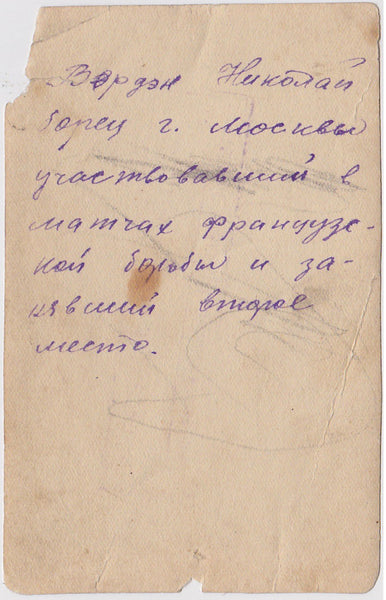 Вердэн Николай
борец г. Москвы
участвовавший в
матчах французс-
кой борьбы и за-
нявший второе
место.